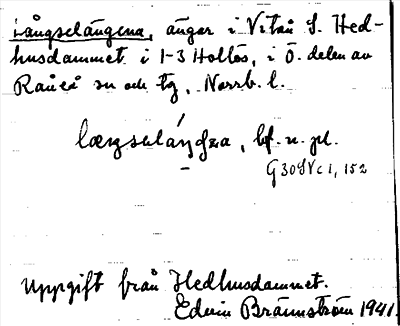 Långselängena, ängar i Vitån S. Hed-
husdammet i 1-3 Holtos, i Ö. delen av
Råneå sn och tg, Norrb. l.
bf. n. pl.
G 30 S V c 1, 152
Uppgift från Hedhusdammet.
Edvin Brännström 1941.